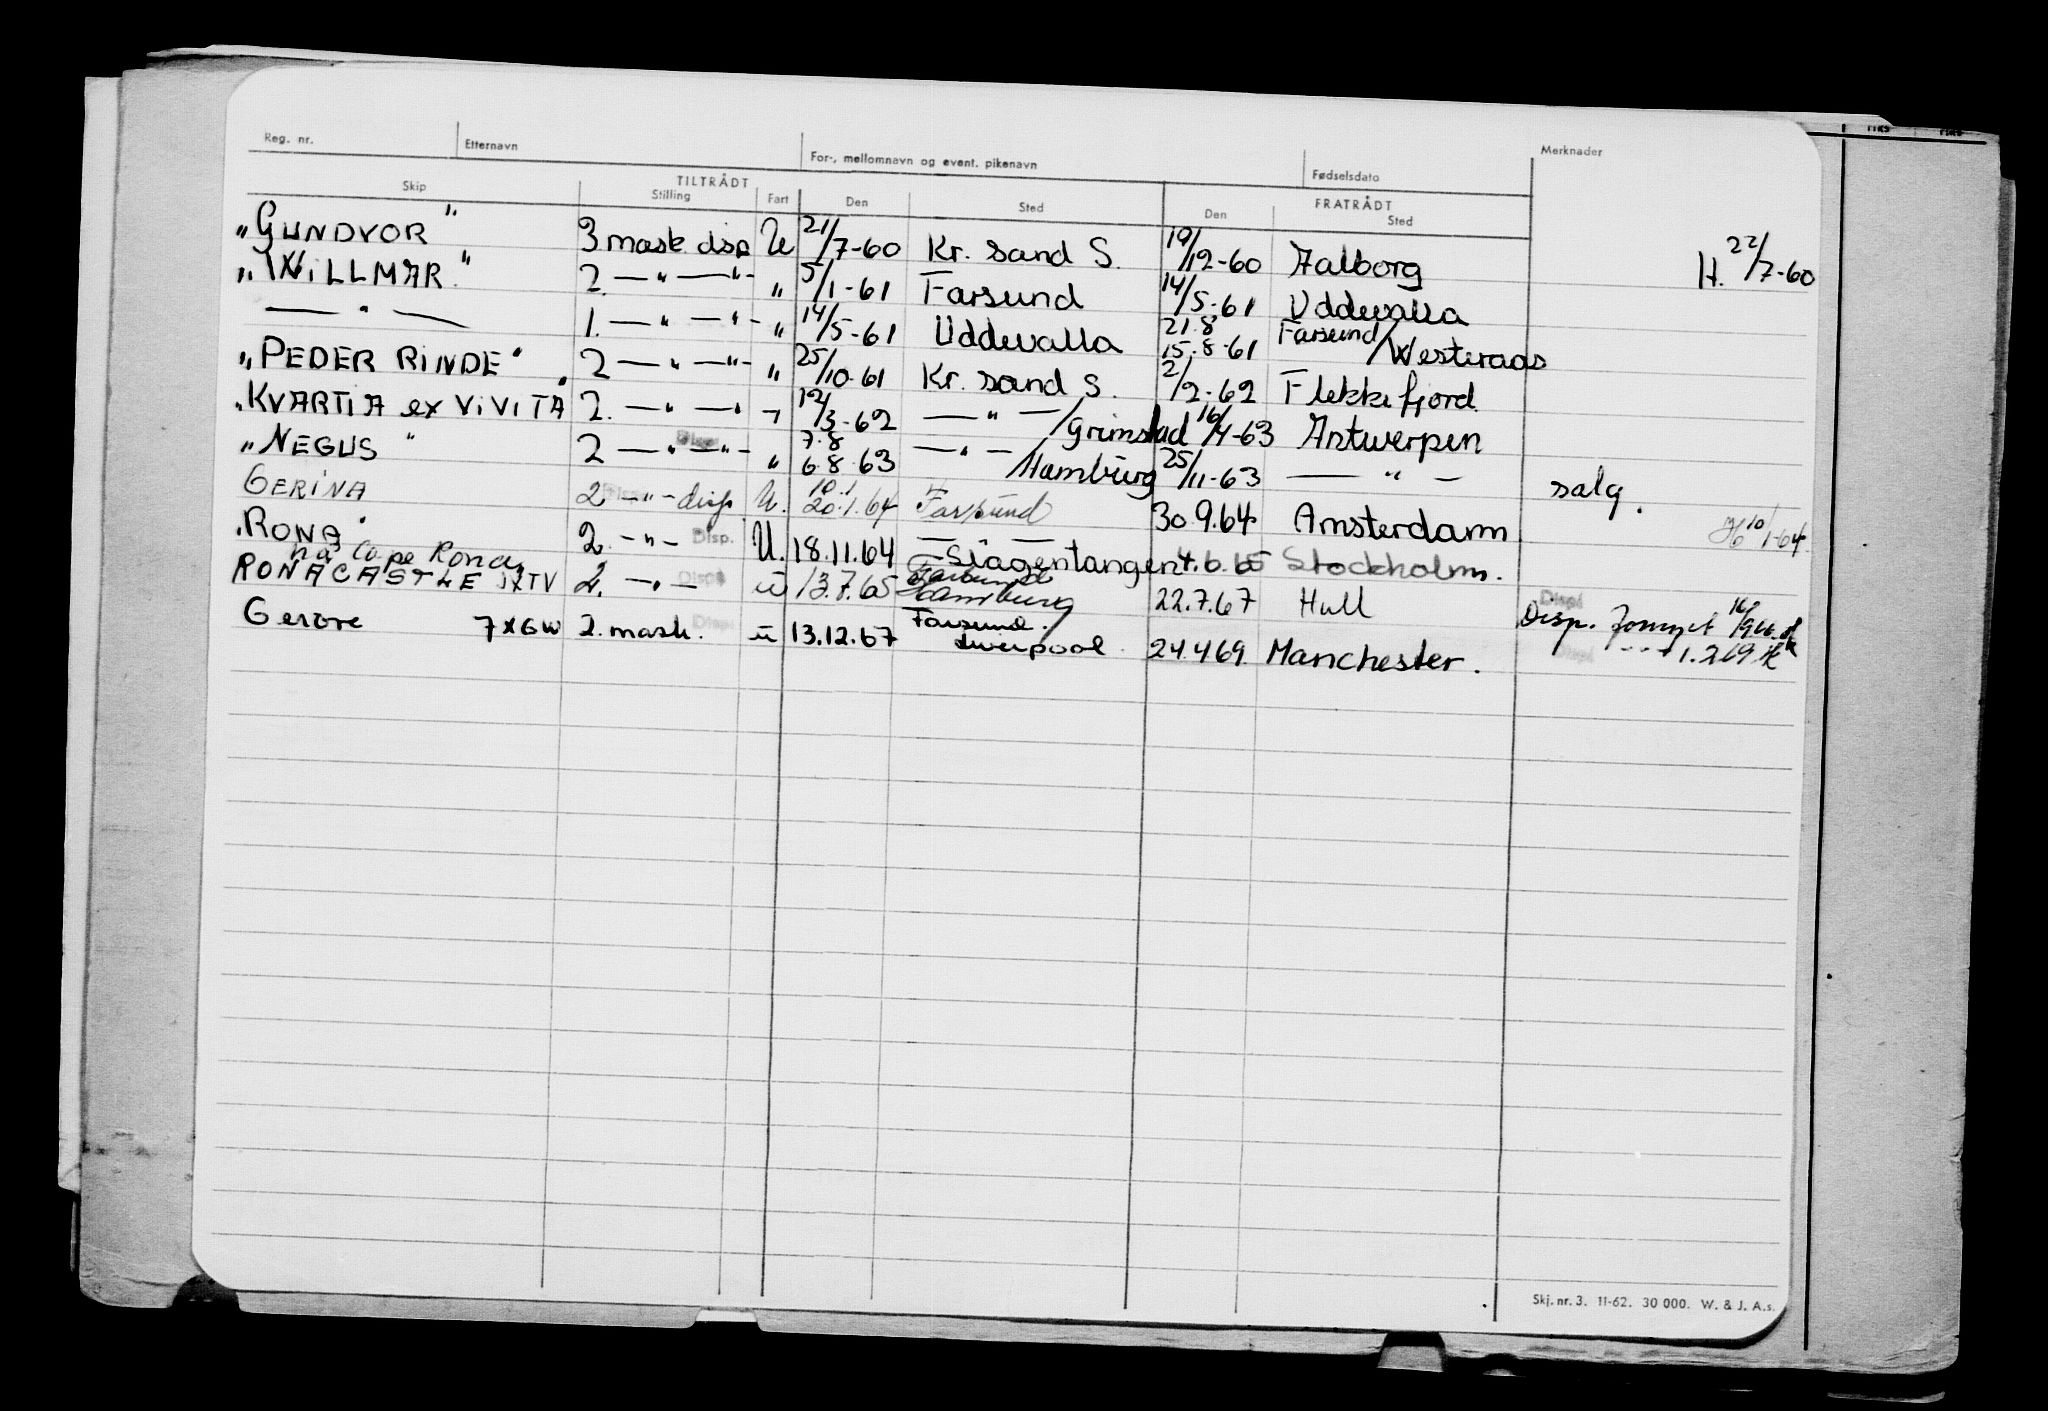 Reg. nr. Etternavn For-, mellomnavn og event. pikenavn Fødselsdato Merknader
TILTRÅDT FRATRÅDT
Skip Stilling Fart Den Sted Den Sted
„GUNDVOR" 3 mask disp U 21/7-60 Kr. sand S. 19/12-60 Aalborg H. 22/7-60
„WILLMAR" 2. — " — " - " 5/1-61 Farsund 14/5-61 Uddevalla
— " — 1. — " — " - " 14/5-61 Uddevalla 21.8 15.8-61 Farsund/Westeraas
„PEDER RINDE" 2 — " — " - " 25/10-61 Kr. sand S. 2/2-62 Flekkefjord
„KVARTIA ex VIVITA" 2. — " — " 12/3-62 — " — /Grimstad 16/4-63 Antwerpen
„NEGUS" 2 — " — " - " 7.8 6.8.63 — " — /Hamburg 25/11-63 — " — salg.
GERINA 2. - " - disp U. 10.1 20.1.64 Farsund 30.9.64 Amsterdam 10/1-64
„RONA" 2. - " - Disp. U. 18.11.64 — Slagentangen 4.6.65 Stockholm.
nå Cape Rona
RONACASTLE JXTV 2. - " - Disp u 13.7.65 Farsund Hamburg 22.7.67 Hull Disp. fornyet
Gerore 7XGW 2. mask. u 13.12.67 Farsund. Liverpool 24.4.69 Manchester. - " - 1.2.69
Skj. nr. 3. 11-62. 30 000. W. & J. A.s.